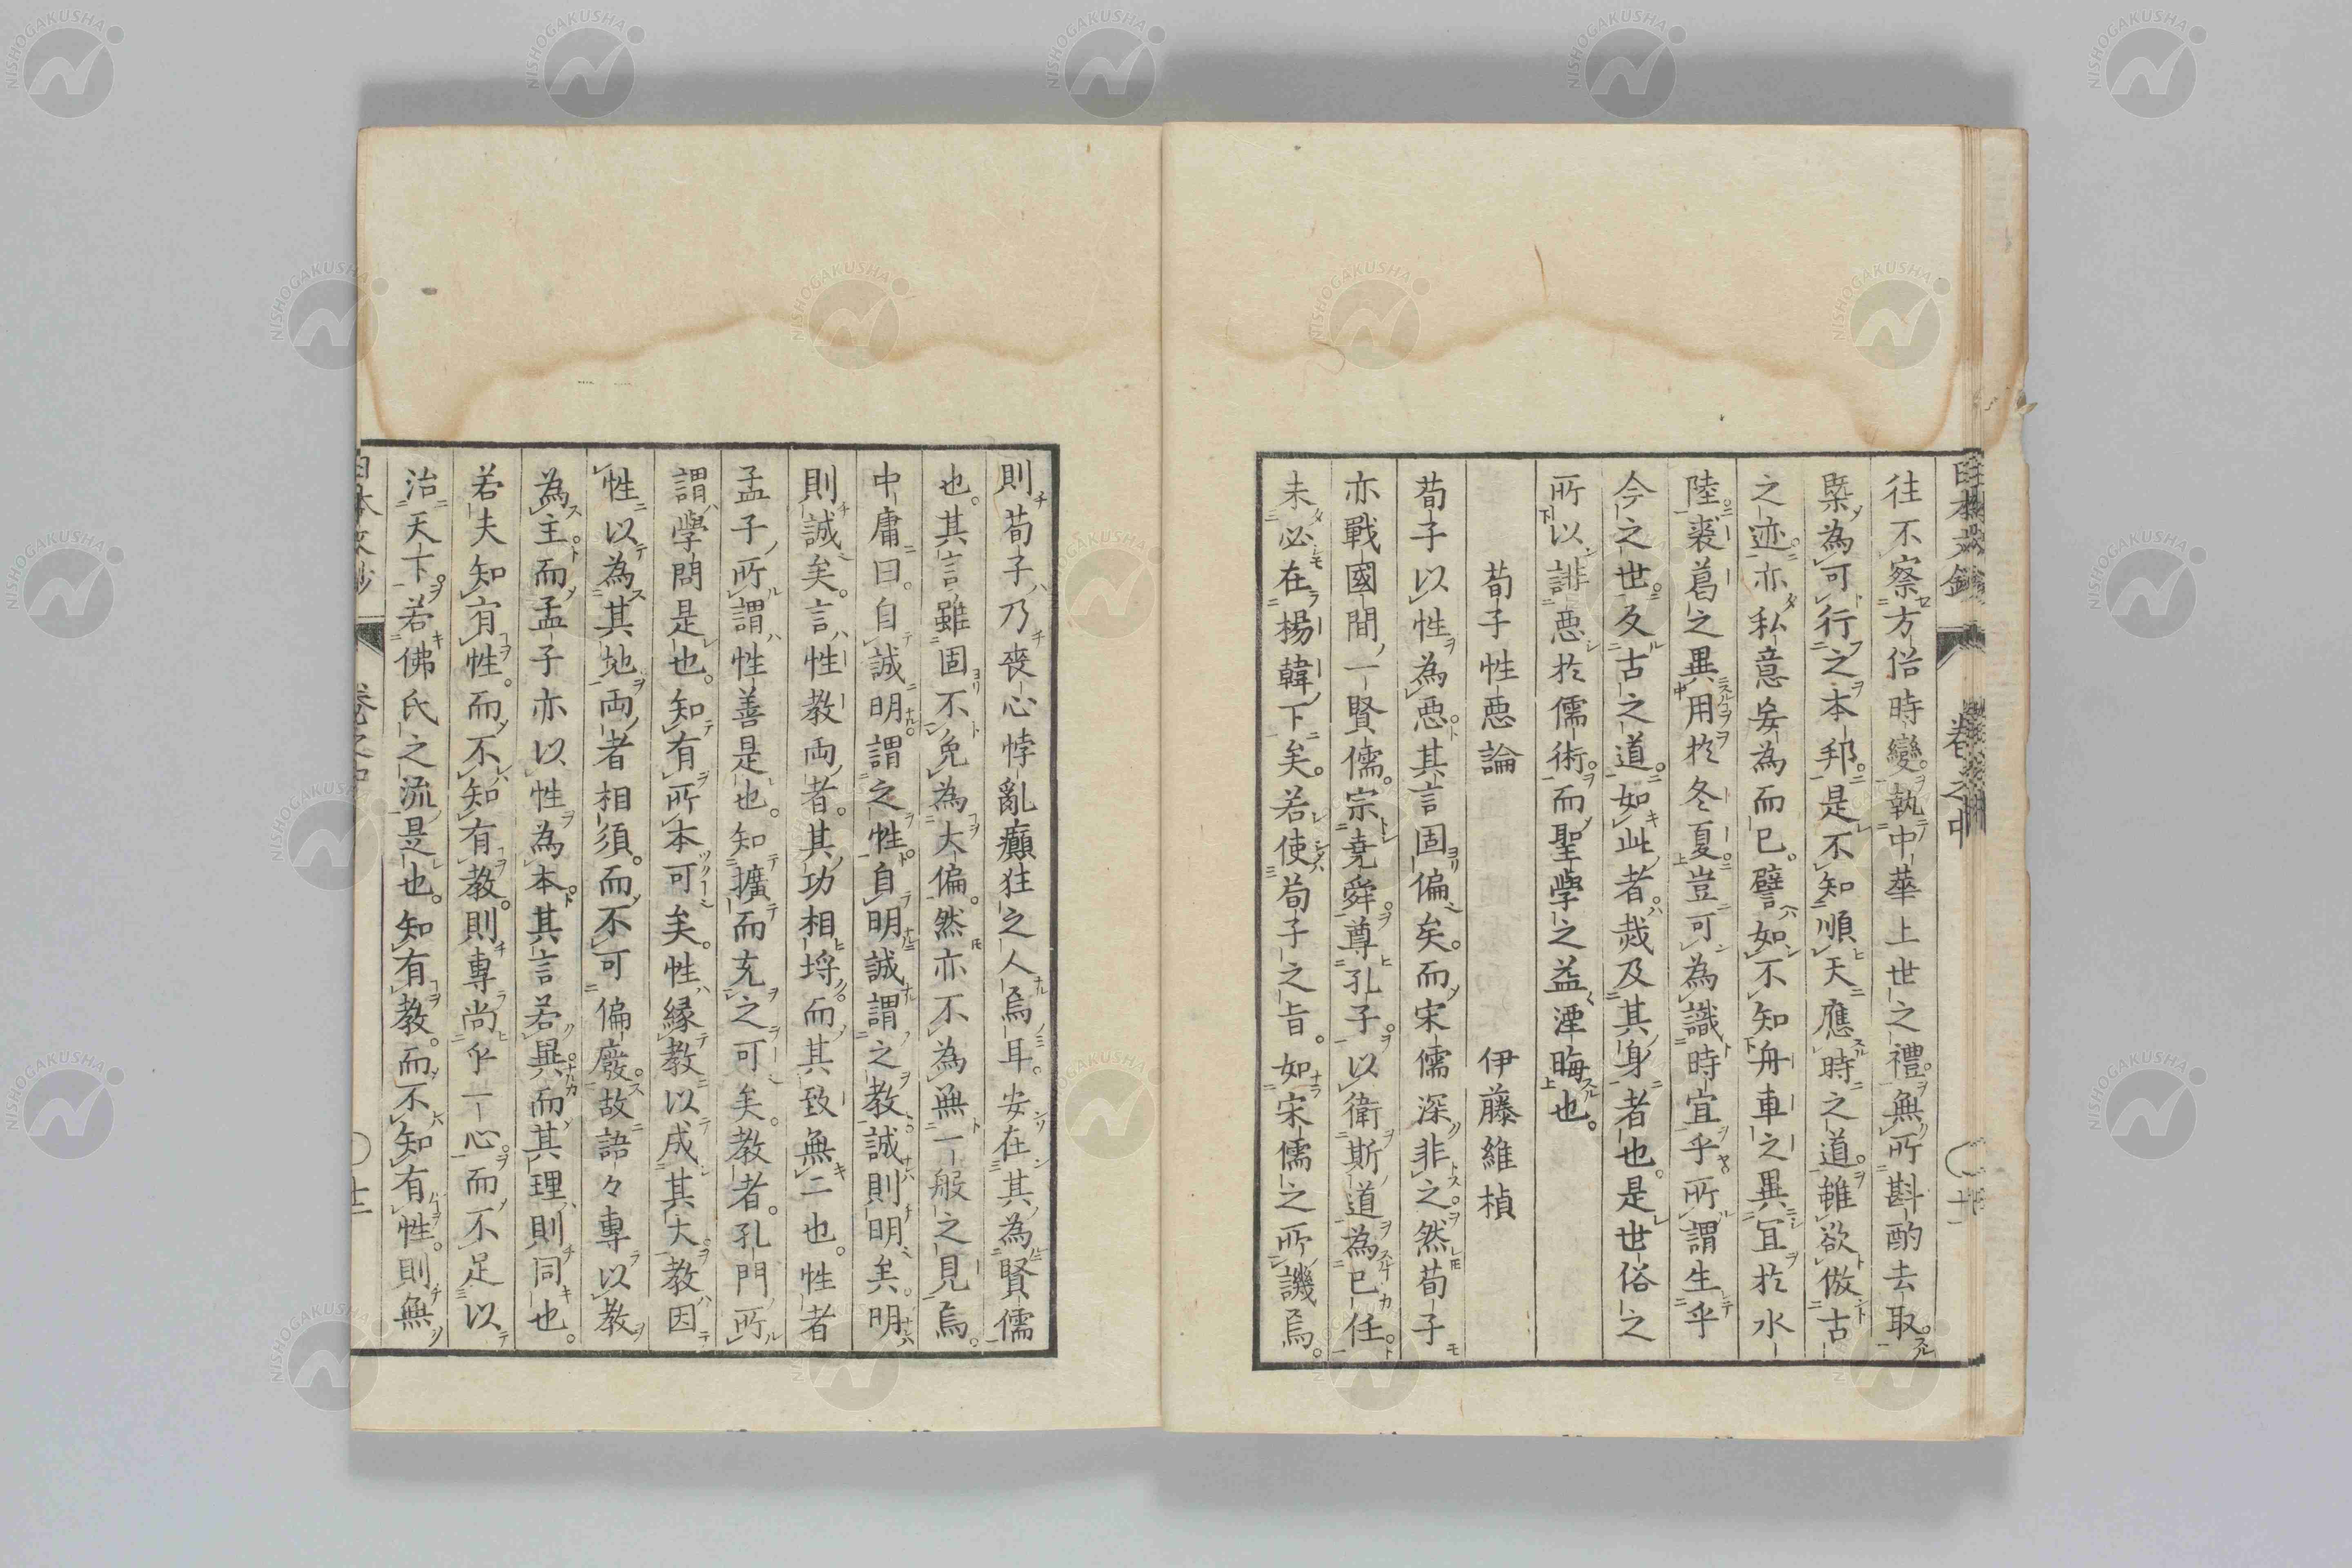 往不察方俗時變執中華上世之禮無所斟酌去取
槩為可行之本邦是不知順天應時之道雖欲倣古
之迹亦私意妄為而已譬如不知舟車之異冝於水
陸裘葛之異用於冬夏豈可為識時宜乎所謂生乎
今之世反古之道如此者烖及其身者也是世俗之
所以誹惡於儒術而聖學之益湮晦也。
荀子性惡論 伊藤維楨
荀子以性為惡其言固偏矣。而宋儒深非之。然荀子
亦戰國間一賢儒。宗堯舜。尊孔子。以衛斯道為己任。
未必在楊韓下矣。若使荀子之旨。如宋儒之所譏焉。
則荀子乃喪心悖亂癲狂之人焉耳。安在其為賢儒
也。其言雖固不免為大偏。然亦不為無一般之見焉。
中庸曰。自誠明。謂之性。自明誠謂之教。誠則明矣。明
則誠矣。言性教兩者。其功相埒。而其致無二也。性者
孟子所謂性善是也。知擴而充之可矣。教者。孔門所
謂學問是也。知有所本可矣。性緣教以成其大教因
性以為其地。兩者相須。而不可偏廢。故語々專以教
為主。而孟子亦以性為本。其言若異。而其理則同也。
若夫知有性。而不知有教。則專尚乎一心。而不足以
治天下。若佛氏之流是也。知有教。而不知有性。則無
日本文鈔 卷之中 十一